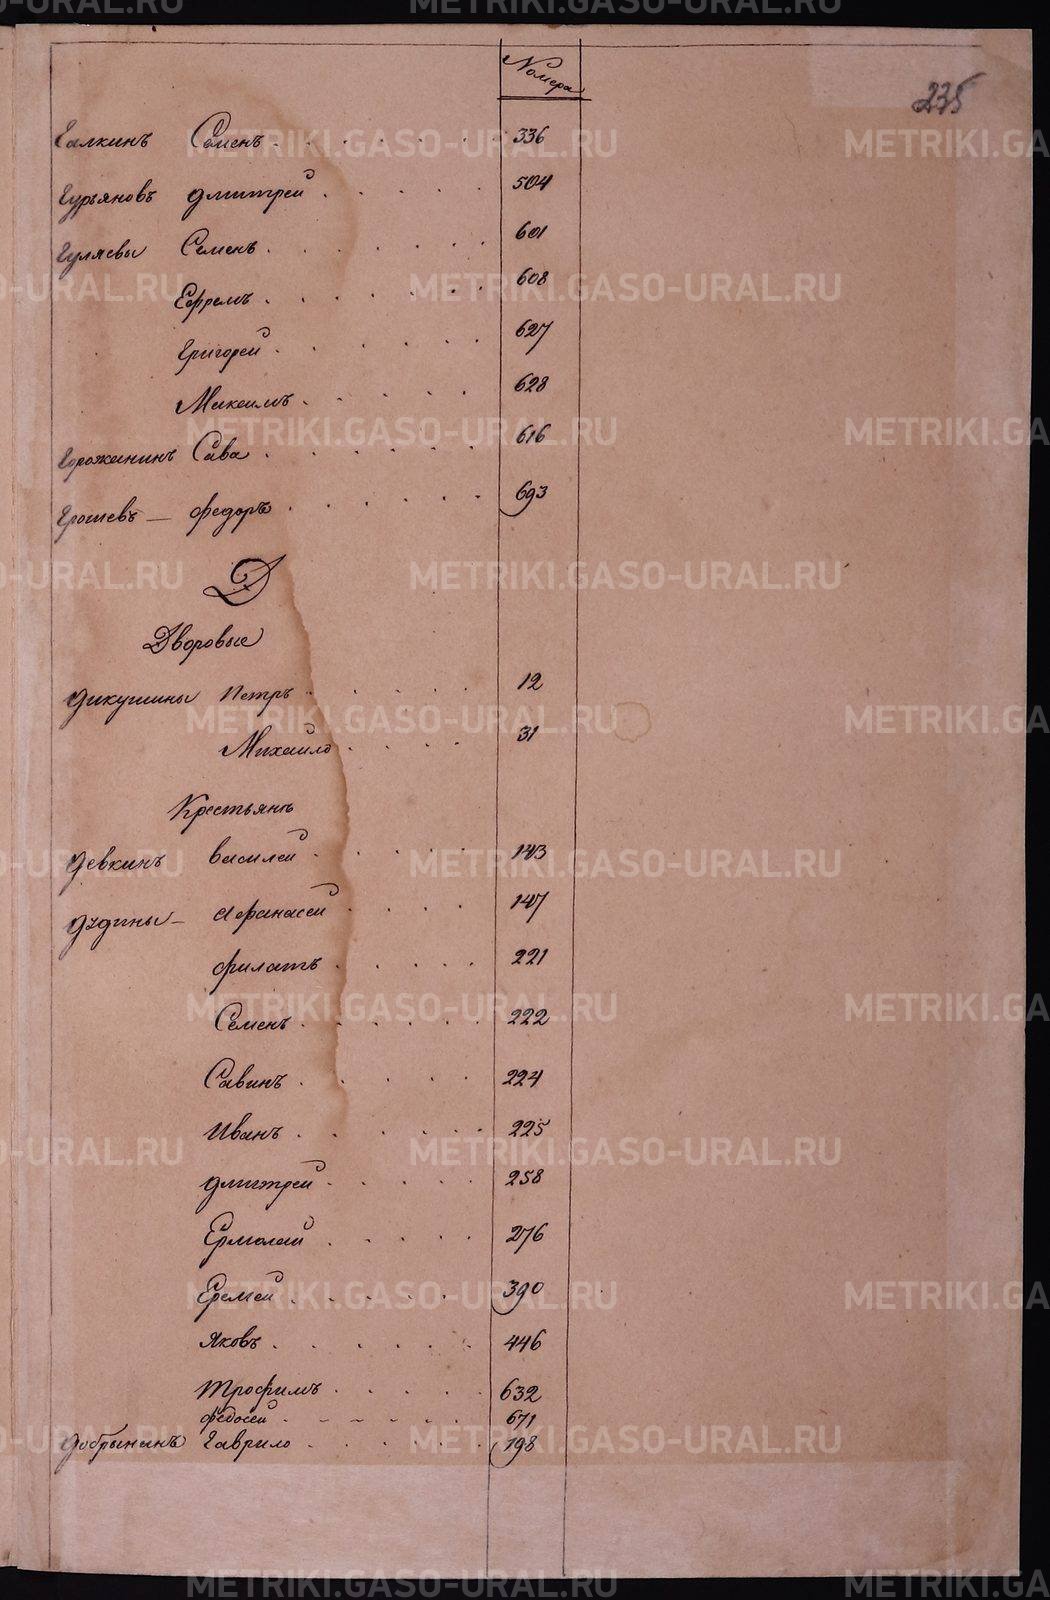 Номера
235
Галкинъ Семенъ 336
Гурьяновъ Дмитрей 504
Гуляевы Семенъ 601
Ефремъ 608
Григорей 627
Максимъ 628
Горожанинъ Сава 616
Ерошевъ — Федоръ 693
Д
Дворовые
Дикушины Петръ 12
Михайло 31
Крестьянъ
Девкинъ Василей 143
Дудины — Афанасей 147
Филатъ 221
Семенъ 222
Савинъ 224
Иванъ 225
Дмитрей 258
Ермолай 276
Еремей 390
Яковъ 446
Трофимъ 632
Федосей 671
Добрынинъ Гаврило 198
METRIKI.GASO-URAL.RU